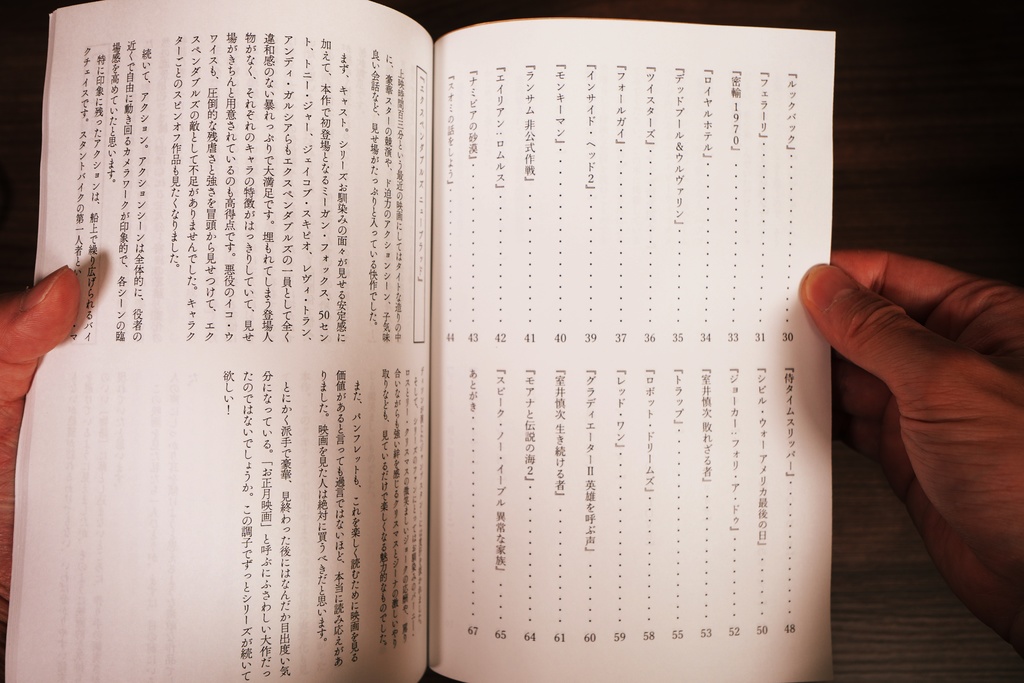 『ルックバック』・・・・・・・・30
『フェラーリ』・・・・・・・・31
『密輸 1970』・・・・・・・・33
『ロイヤルホテル』・・・・・・・・34
『デッドプール＆ウルヴァリン』・・・・・・35
『ツイスターズ』・・・・・・・・36
『フォールガイ』・・・・・・・・37
『インサイド・ヘッド2』・・・・・・・・39
『モンキーマン』・・・・・・・・40
『ランサム 非公式作戦』・・・・・・・・41
『エイリアン：ロムルス』・・・・・・・・42
『ナミビアの砂漠』・・・・・・・・43
『スオミの話をしよう』・・・・・・・・44
『侍タイムスリッパー』・・・・・・・・48
『シビル・ウォー アメリカ最後の日』・・・・50
『ジョーカー：フォリ・ア・ドゥ』・・・・・・52
『室井慎次 敗れざる者』・・・・・・・・53
『トラップ』・・・・・・・・55
『ロボット・ドリームズ』・・・・・・・・58
『レッド・ワン』・・・・・・・・59
『グラディエーターⅡ 英雄を呼ぶ声』・・・・60
『室井慎次 生き続ける者』・・・・・・・・61
『モアナと伝説の海2』・・・・・・・・64
『スピーク・ノー・イーブル 異常な家族』・・・・65
あとがき・・・・・・・・67
『エクスペンダブルズ ニューブラッド』
上映時間百三分という最近の映画にしてはタイトな造りの中
に、豪華スターの競演や、ド迫力のアクションシーン、子気味
良い会話など、見せ場がたっぷりと入っている快作でした。
まず、キャスト。シリーズお馴染みの面々が見せる安定感に
加えて、本作で初登場となるミーガン・フォックス、50セン
ト、トニー・ジャー、ジェイコブ・スキピオ、レヴィ・トラン、
アンディ・ガルシアらもエクスペンダブルズの一員として全く
違和感のない暴れっぷりで大満足です。埋もれてしまう登場人
物がなく、それぞれのキャラの特徴がはっきりしていて、見せ
場がきちんと用意されているのも高得点です。悪役のイコ・ウ
ワイスも、圧倒的な残虐さと強さを冒頭から見せつけて、エク
スペンダブルズの敵として不足がありませんでした。キャラク
ターごとのスピンオフ作品も見たくなりました。
続いて、アクション。アクションシーンは全体的に、役者の
近くで自由に動き回るカメラワークが印象的で、各シーンの臨
場感を高めていたと思います。
特に印象に残ったアクションは、船上で繰り広げられるバイ
クチェイスです。スタントバイクの第一人者とい
合いながらも強い絆を感じるクリスマスとジーナの激しいやり
取りなども、見ているだけで楽しくなる魅力的なものでした。
また、パンフレットも、これを楽しく読むために映画を見る
価値があると言っても過言ではないほど、本当に読み応えがあ
りました。映画を見た人は絶対に買うべきだと思います。
とにかく派手で豪華、見終わった後にはなんだか目出度い気
分になっている。「お正月映画」と呼ぶにふさわしい大作だっ
たのではないでしょうか。この調子でずっとシリーズが続いて
欲しい！